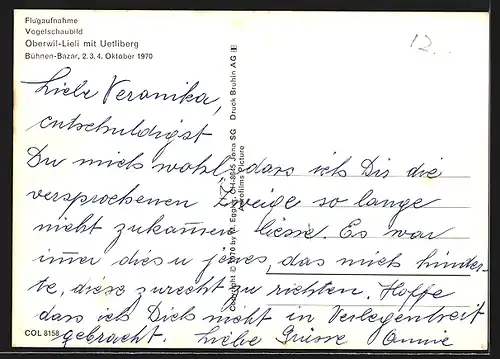 Flugaufnahme
Vogelschaubild
Oberwil-Lieli mit Uetliberg
Bühnen-Bazar, 2. 3. 4. Oktober 1970
12.-
Liebe Veronika,
entschuldigst
Du mich wohl, dass ich Dir die
versprochenen Zweige so lange
nicht zukommen liesse. Es war
immer dies u jenes, das mich hinder-
te, diese zurecht zu richten. Hoffe
dass ich Dich nicht in Verlegenheit
gebracht. Liebe Grüsse Annie
COL 8158
Copyright © 1970 by M. Eggler, CH-8645 Jona SG Druck Bruhin AG
Aerofilms Picture